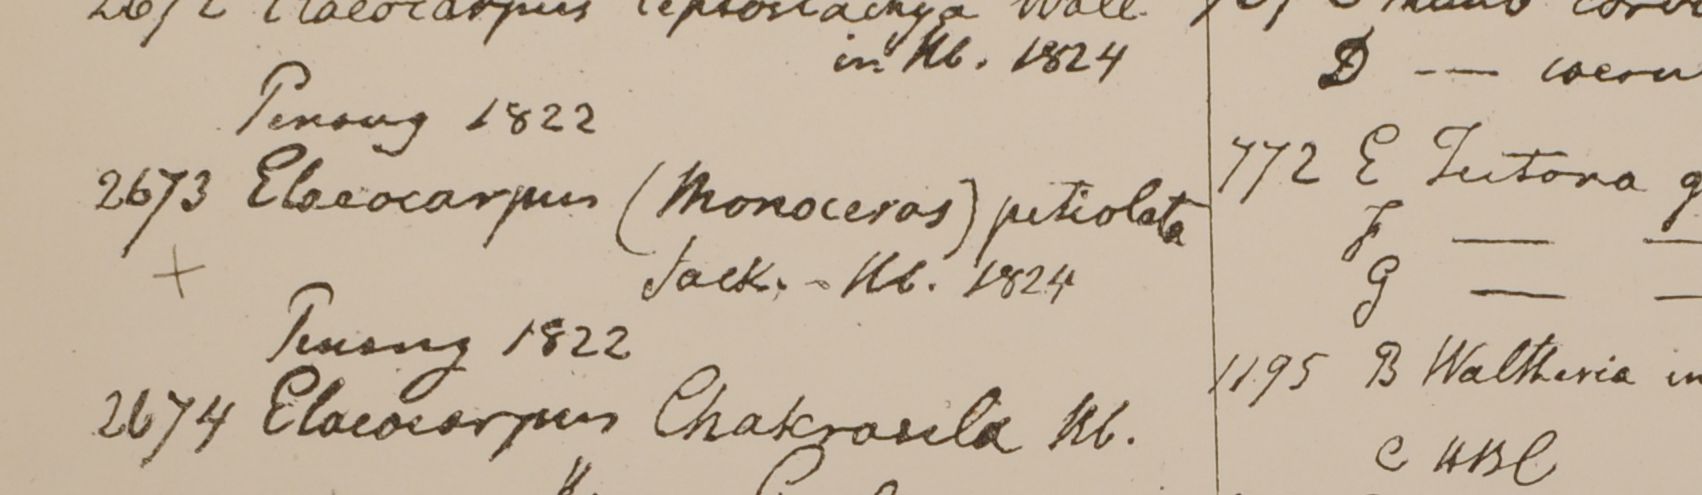 2672 Elaeocarpus leptostachya Wall.
in Hb. 1824
Penang 1822
2673 Elaeocarpus (Monoceras) petiolata
Jack. - Hb. 1824
Penang 1822
2674 Elaeocarpus Chakrasila Hb.
D —
772 E
F — —
G — —
1195 B Waltheria in
C HBC